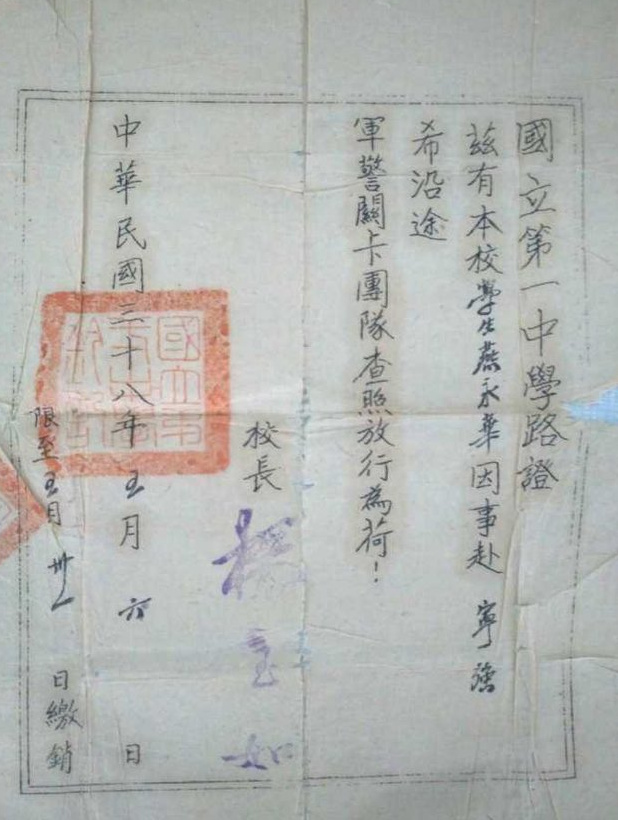 國立第一中學路證
茲有本校學生燕永華因事赴 寧強
希沿途
軍警關卡團隊查照放行為荷！
校長 楊玉如
中華民國三十八年五月六日
限至五月卅一日繳銷